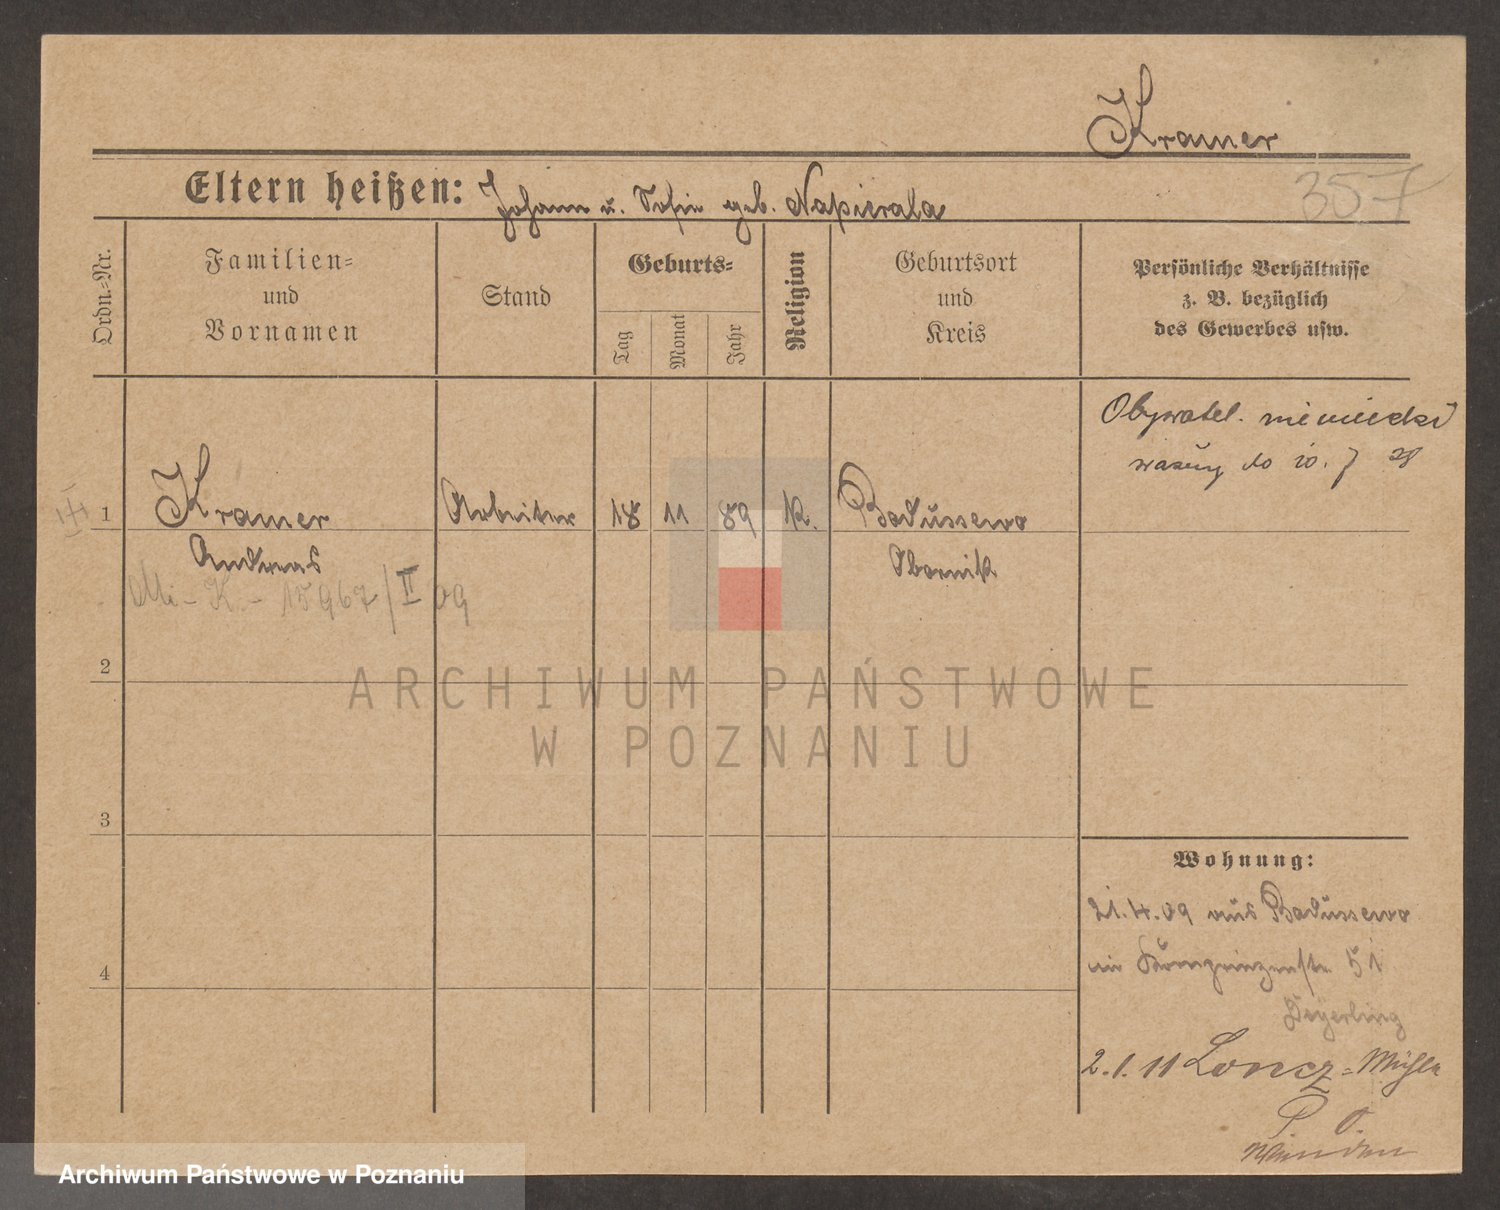 Kramer
Eltern heißen: Johann u. Sofie geb. Napierala
357
Ordn.-Nr.
Familien-
und
Vornamen
Stand
Geburts-
Tag
Monat
Jahr
Religion
Geburtsort
und
Kreis
Persönliche Verhältnisse
z. B. bezüglich
des Gewerbes usw.
Obywatel. niemiecki
ważny do 10. 7 28
1 Kramer Arbeiter 18 11 89 k. Bodussewo
Andreas Obornik
Mi - K - 15967/II 09
2
3
4
ARCHIWUM PAŃSTWOWE
W POZNANIU
Wohnung:
21.4.09 aus Bodussewo
Kronprinzenstr. 51
Deyerling
2.1.11 Loncz-Mühle
P. O.
Archiwum Państwowe w Poznaniu